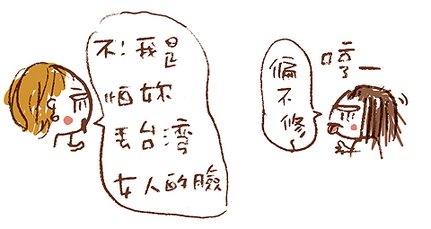 不!我是
怕妳
丟台湾
女人的臉
哼—
偏不修